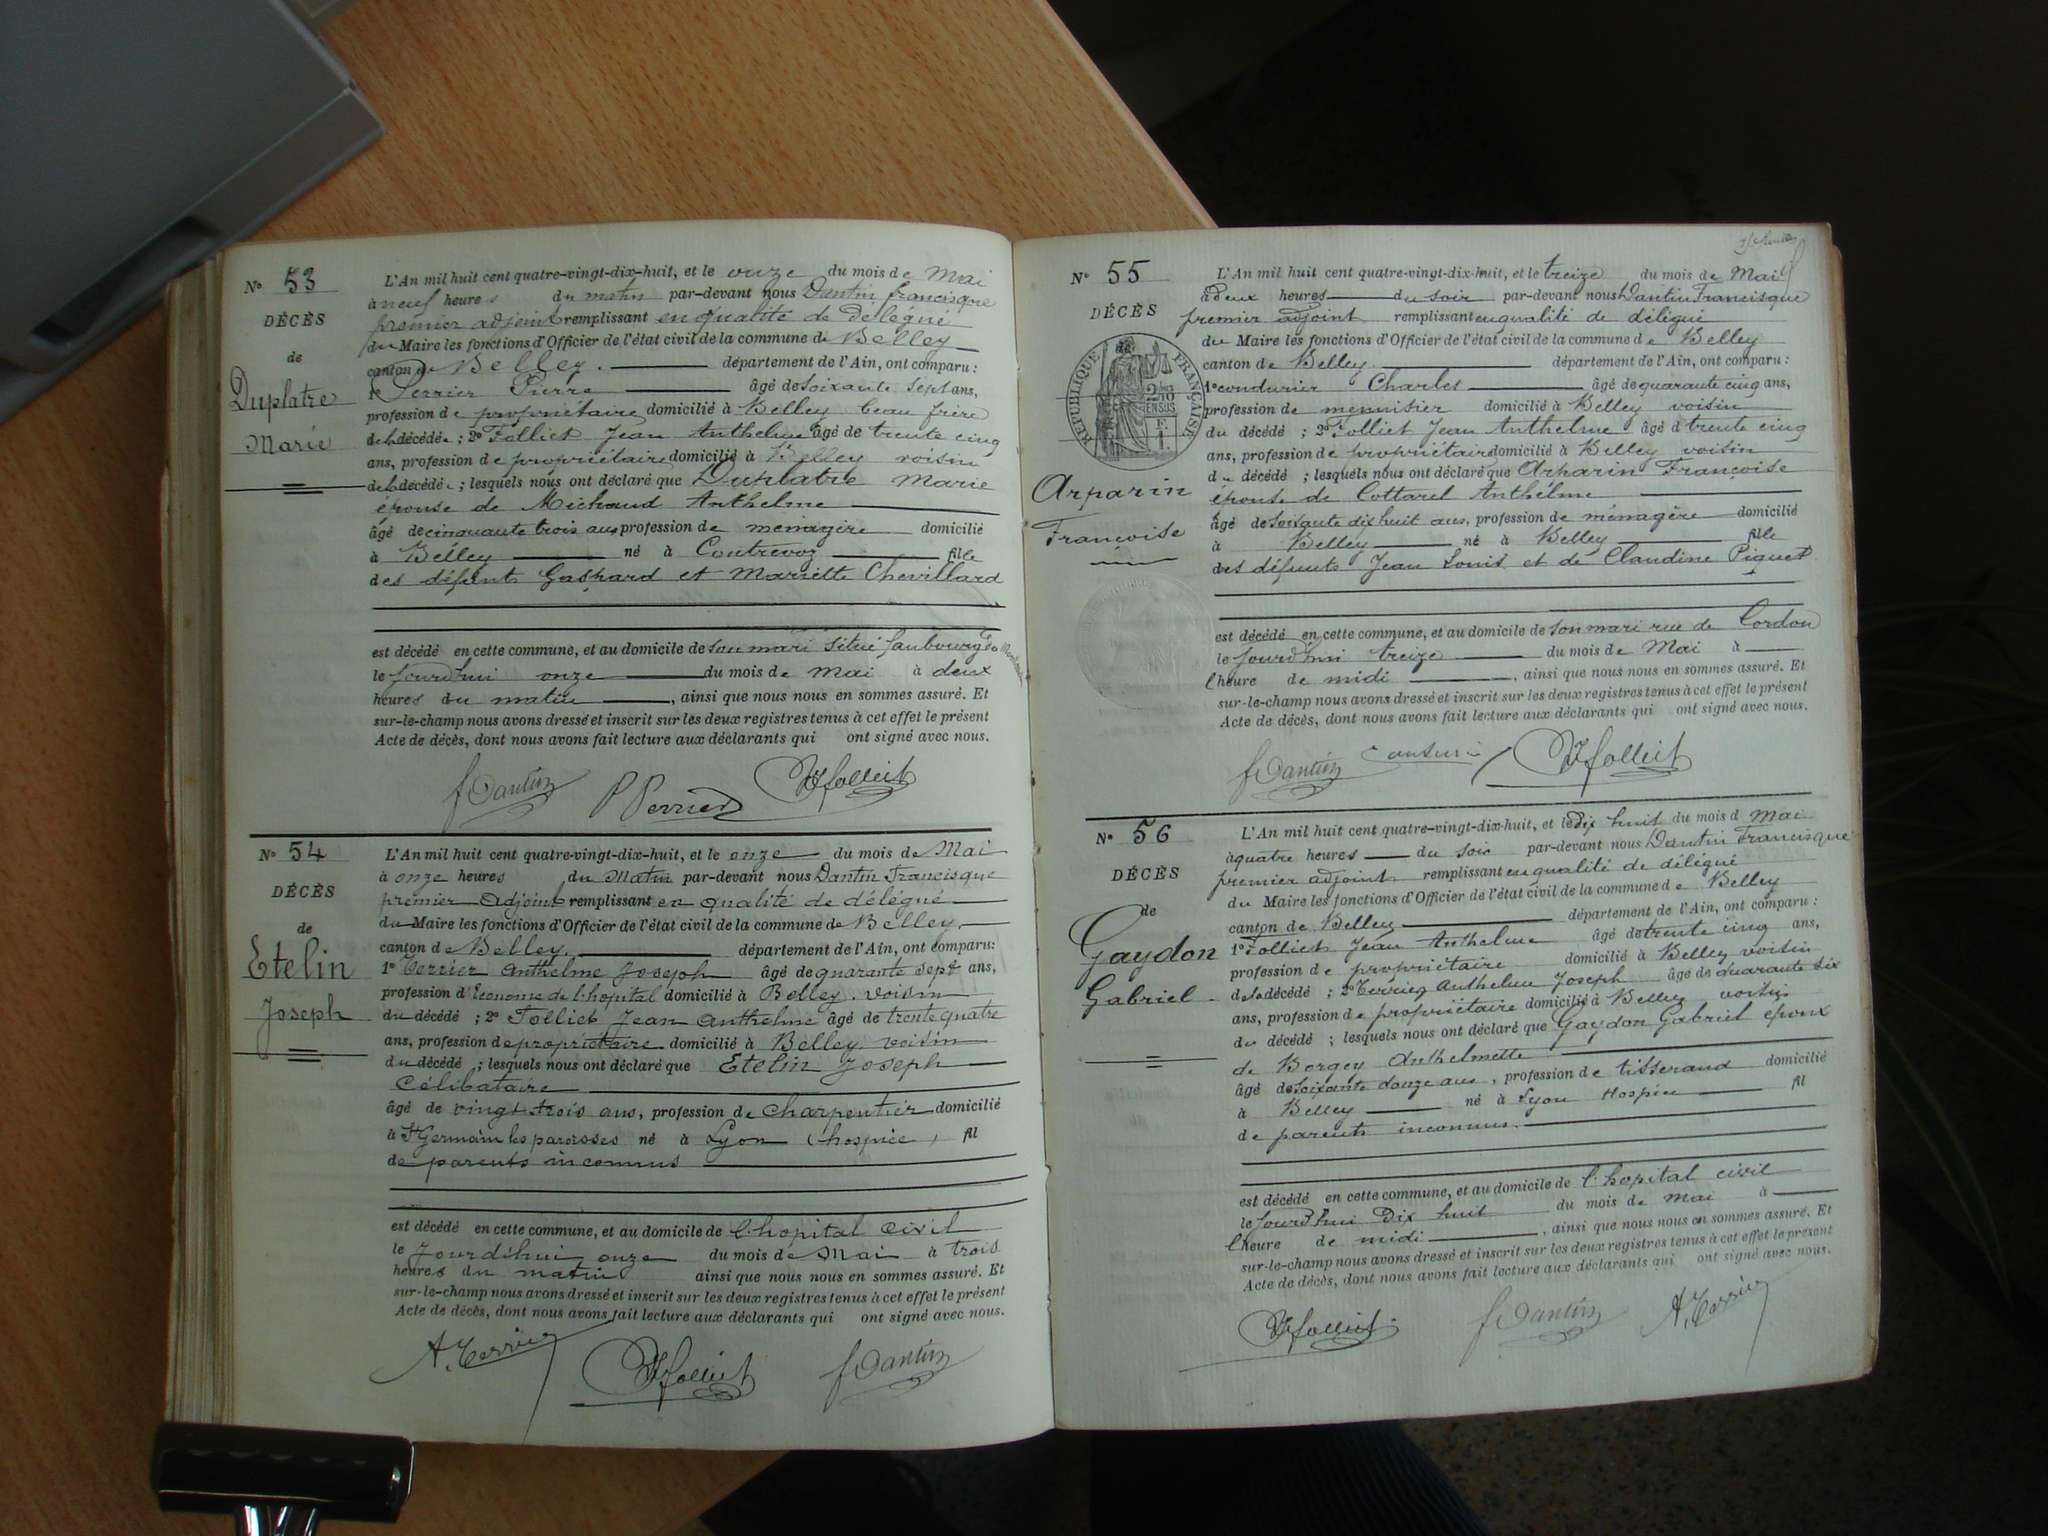 N° 53
DÉCÈS
de
Duplatre
Marie
L'An mil huit cent quatre-vingt-dix-huit, et le onze du mois de Mai
à neuf heures du matin par-devant nous Dantin francisque
premier adjoint remplissant en qualité de délégué
du Maire les fonctions d'Officier de l'état civil de la commune de Belley
canton de Belley. département de l'Ain, ont comparu :
1° Perrier Pierre âgé de soixante sept ans,
profession de propriétaire domicilié à Belley beau frère
de la décédée ; 2° Folliet Jean Anthelme âgé de trente cinq
ans, profession de propriétaire domicilié à Belley voisin
de la décédée ; lesquels nous ont déclaré que Duplatre Marie
épouse de Michaud Anthelme
âgé de cinquante trois ans, profession de ménagère domicilié
à Belley né à Contrevoz fille
des défunts Gaspard et Mariette Chevillard
est décédé en cette commune, et au domicile de son mari situé faubourg de
le jourd'hui onze du mois de Mai à deux
heures du matin, ainsi que nous nous en sommes assuré. Et
sur-le-champ nous avons dressé et inscrit sur les deux registres tenus à cet effet le présent
Acte de décès, dont nous avons fait lecture aux déclarants qui ont signé avec nous.
f Dantin P Perrier JA folliet
N° 54
DÉCÈS
de
Etelin
Joseph
L'An mil huit cent quatre-vingt-dix-huit, et le onze du mois de Mai
à onze heures du Matin par-devant nous Dantin Francisque
premier Adjoint remplissant en qualité de délégué
du Maire les fonctions d'Officier de l'état civil de la commune de Belley.
canton de Belley. département de l'Ain, ont comparu:
1° Terrier Anthelme Joseph âgé de quarante sept ans,
profession d'Econome de l'hopital domicilié à Belley. voisin
du décédé ; 2° Folliet Jean Anthelme âgé de trente quatre
ans, profession de propriétaire domicilié à Belley. voisin
du décédé ; lesquels nous ont déclaré que Etelin Joseph
Célibataire
âgé de vingt trois ans, profession de Charpentier domicilié
à St Germain les paroisses né à Lyon (hospice) fil
de parents inconnus
est décédé en cette commune, et au domicile de l'hopital civil
le Jourd'hui onze du mois de Mai à trois
heures du matin ainsi que nous nous en sommes assuré. Et
sur-le-champ nous avons dressé et inscrit sur les deux registres tenus à cet effet le présent
Acte de décès, dont nous avons fait lecture aux déclarants qui ont signé avec nous.
A. Terrier JA folliet f Dantin
N° 55
DÉCÈS
de
RÉPUBLIQUE FRANÇAISE
2/10 EN SUS
Arparin
Françoise
L'An mil huit cent quatre-vingt-dix-huit, et le treize du mois de Mai
à deux heures du soir par-devant nous Dantin Francisque
premier adjoint remplissant en qualité de délégué
du Maire les fonctions d'Officier de l'état civil de la commune de Belley
canton de Belley. département de l'Ain, ont comparu :
1° Condurier Charles âgé de quarante cinq ans,
profession de menuisier domicilié à Belley voisin
du décédé ; 2° Folliet Jean Anthelme âgé d trente cinq
ans, profession de propriétaire domicilié à Belley voisin
du décédé ; lesquels nous ont déclaré que Arparin Françoise
épouse de Cottarel Anthelme
âgé de soixante dix huit ans, profession de ménagère domicilié
à Belley né à Belley fille
des défunts Jean Louis et de Claudine Piquet
est décédé en cette commune, et au domicile de son mari rue de Cordon
le jourd'hui treize du mois de Mai à
l'heure de midi, ainsi que nous nous en sommes assuré. Et
sur-le-champ nous avons dressé et inscrit sur les deux registres tenus à cet effet le présent
Acte de décès, dont nous avons fait lecture aux déclarants qui ont signé avec nous.
f Dantin JA folliet
N° 56
DÉCÈS
de
Gaydon
Gabriel
L'An mil huit cent quatre-vingt-dix-huit, et le dix huit du mois d Mai
à quatre heures du soir par-devant nous Dantin Francisque
premier adjoint remplissant en qualité de délégué
du Maire les fonctions d'Officier de l'état civil de la commune de Belley
canton de Belley département de l'Ain, ont comparu :
1° Folliet Jean Anthelme âgé de trente cinq ans,
profession de propriétaire domicilié à Belley voisin
de la décédé ; 2° Terrier Anthelme Joseph âgé de quarante six
ans, profession de propriétaire domicilié à Belley voisin
du décédé ; lesquels nous ont déclaré que Gaydon Gabriel époux
de Borgey Anthelmette
âgé de soixante douze ans, profession de tisserand domicilié
à Belley né à Lyon Hospice fil
de parents inconnus.
est décédé en cette commune, et au domicile de l'hopital civil
le jourd'hui dix huit du mois de Mai à
l'heure de midi, ainsi que nous nous en sommes assuré. Et
sur-le-champ nous avons dressé et inscrit sur les deux registres tenus à cet effet le présent
Acte de décès, dont nous avons fait lecture aux déclarants qui ont signé avec nous.
JA folliet f Dantin A. Terrier